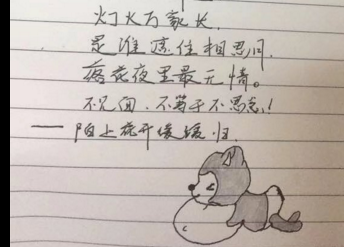 灯火万家长.
是谁添住相思问.
落花夜里最无情。
不见面.不等于不思念!
——陌上花开缓缓归.